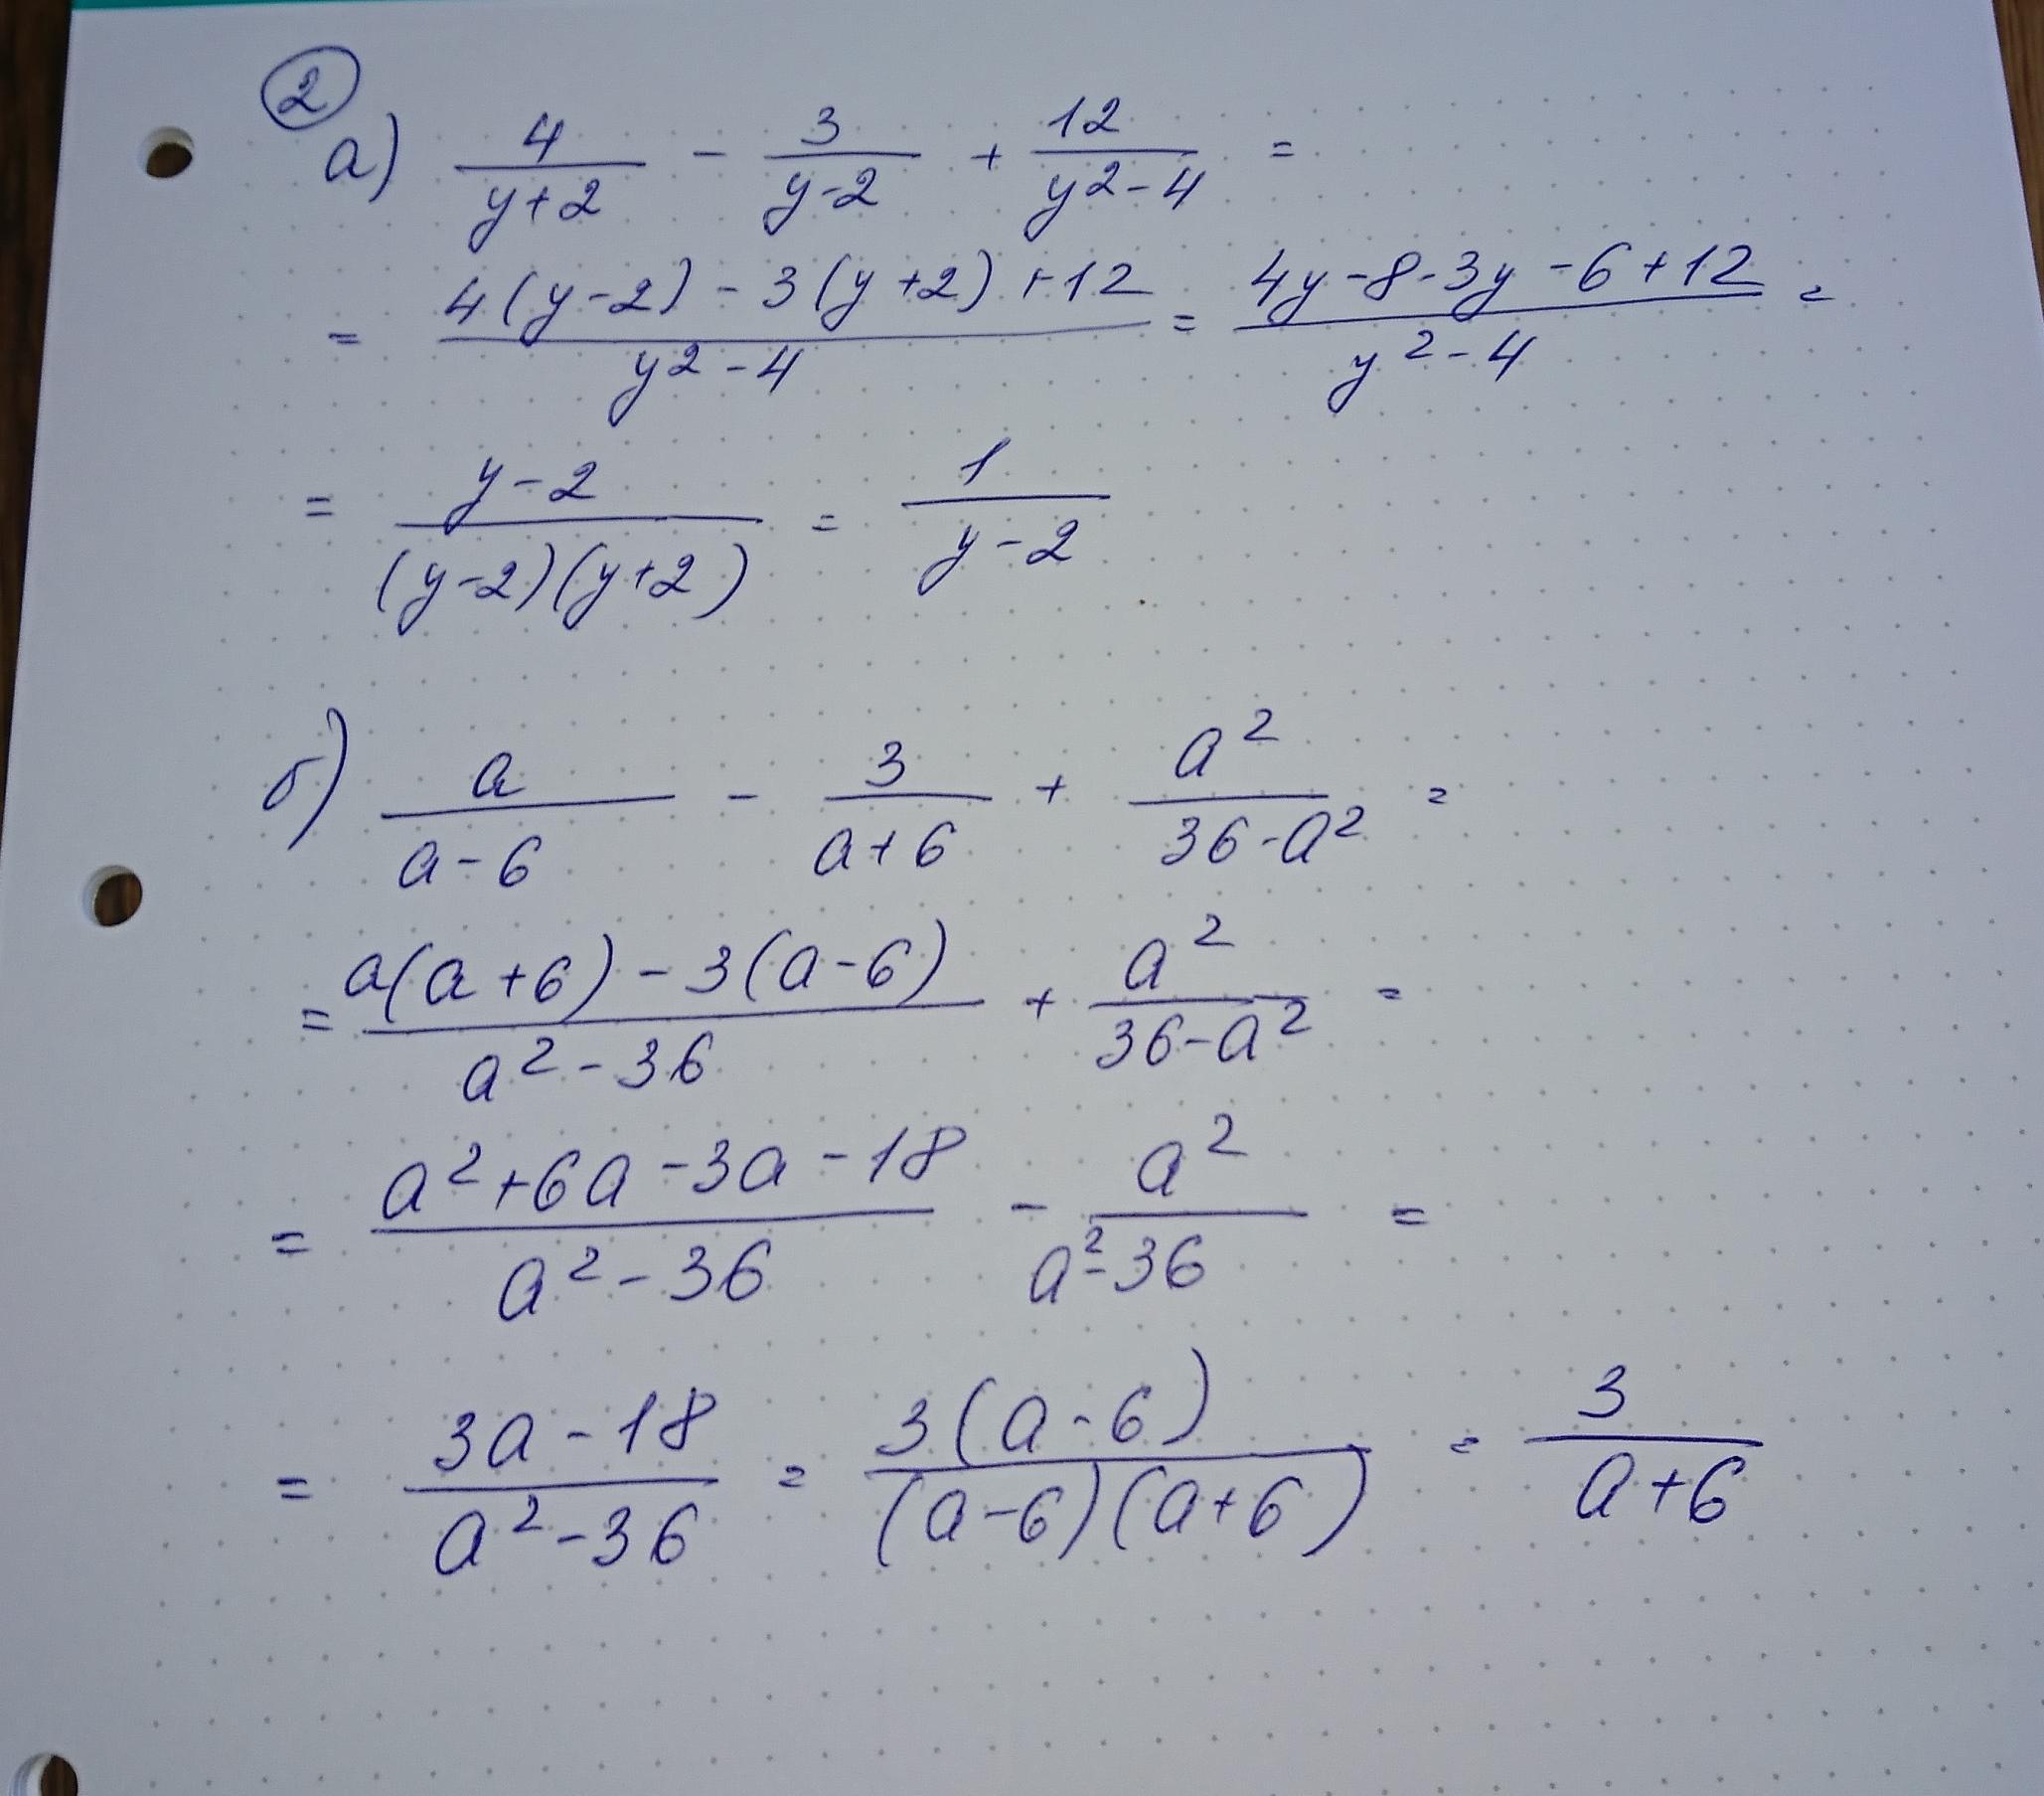 ②
а) 4/(y+2) - 3/(y-2) + 12/(y2-4) =
= (4(y-2)-3(y+2)+12)/(y2-4) = (4y-8-3y-6+12)/(y²-4) =
= (y-2)/((y-2)(y+2)) = 1/(y-2)
б) a/(a-6) - 3/(a+6) + a²/(36-a²) =
= (a(a+6)-3(a-6))/(a²-36) + a²/(36-a²) =
= (a²+6a-3a-18)/(a²-36) - a²/(a²-36) =
= (3a-18)/(a²-36) = 3(a-6)/((a-6)(a+6)) = 3/(a+6)